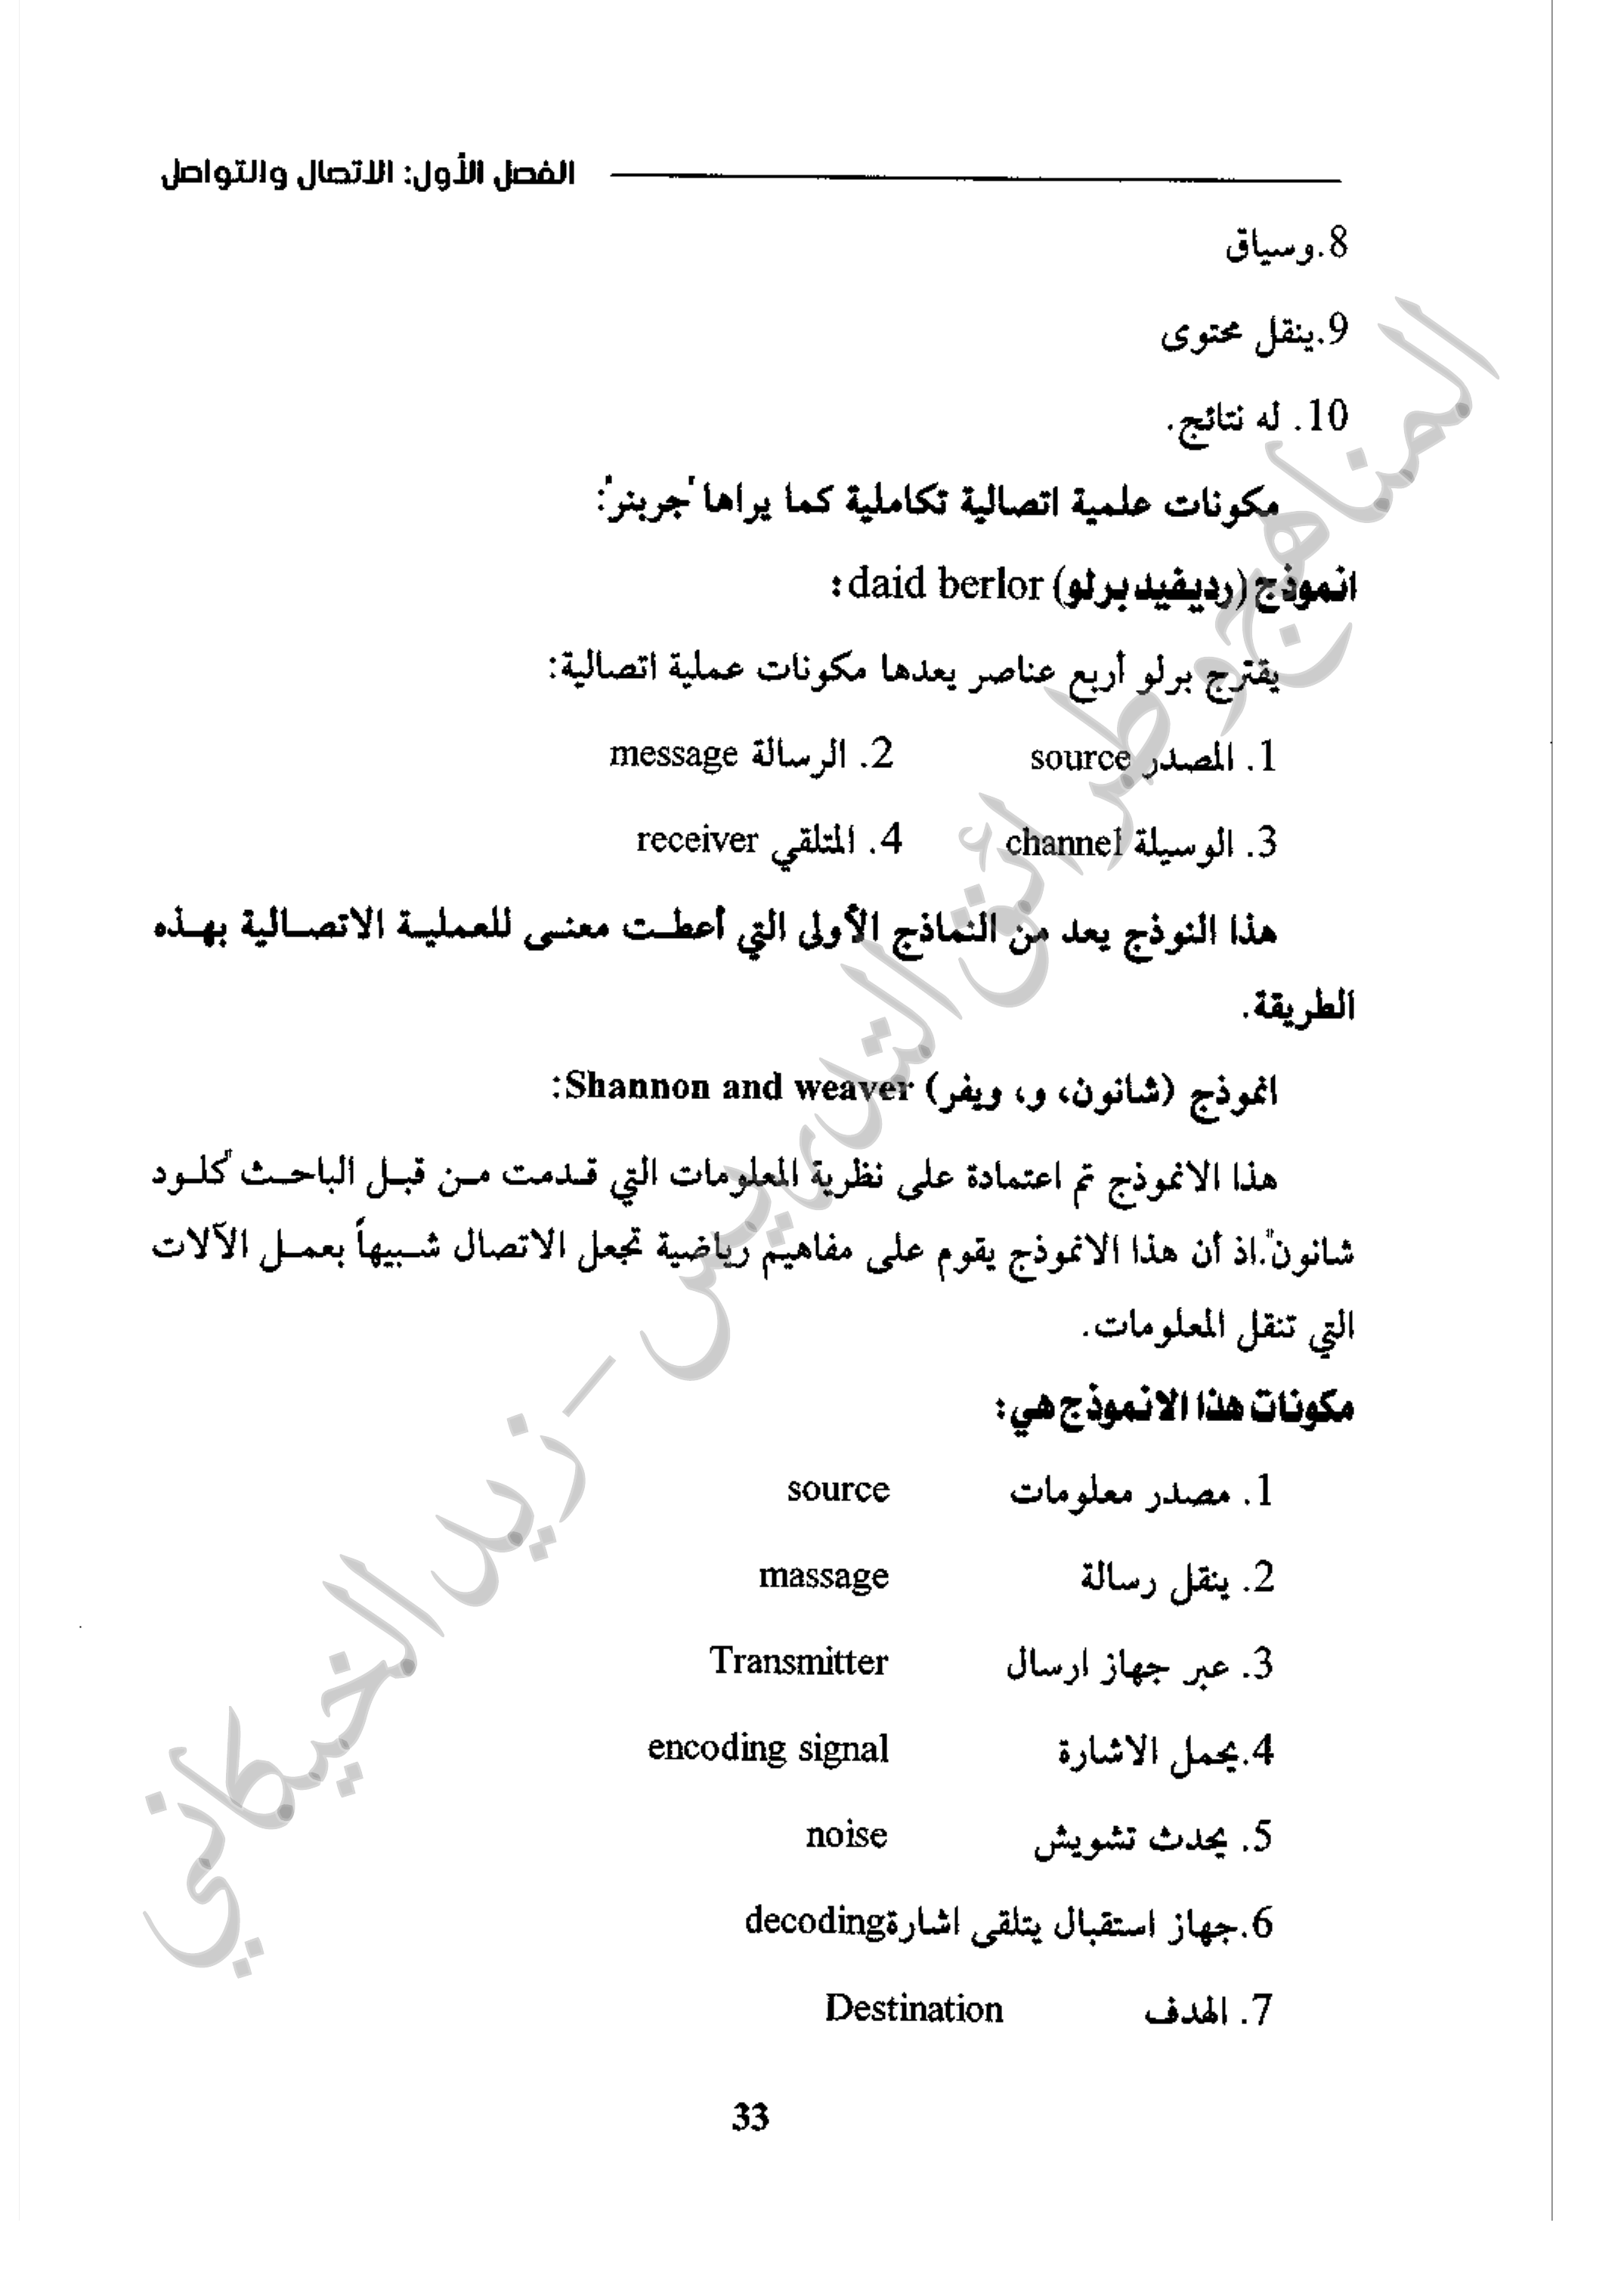 الفصل الأول: الاتصال والتواصل
8.وسياق
9.ينقل محتوى
10. له نتائج.
مكونات علمية اتصالية تكاملية كما يراها "جربنر":
انموذج (رديفيد برلو) daid berlor:
يقترح برلو أربع عناصر يعدها مكونات عملية اتصالية:
1. المصدر source 2. الرسالة message
3. الوسيلة channel 4. المتلقي receiver
هذا النوذج يعد من النماذج الأولى التي أعطت معنى للعملية الاتصالية بهذه
الطريقة.
انموذج (شانون، و، ويفر) Shannon and weaver:
هذا الانموذج تم اعتمادة على نظرية المعلومات التي قدمت من قبل الباحث "كلود
شانون".اذ أن هذا الانموذج يقوم على مفاهيم رياضية تجعل الاتصال شبيهاً بعمل الآلات
التي تنقل المعلومات.
مكونات هذا الانموذج هي:
1. مصدر معلومات source
2. ينقل رسالة massage
3. عبر جهاز ارسال Transmitter
4.يحمل الاشارة encoding signal
5. يحدث تشويش noise
6.جهاز استقبال يتلقى اشارةdecoding
7. الهدف Destination
33
المناهج وطرائق التدريس - زيد الخيكاني